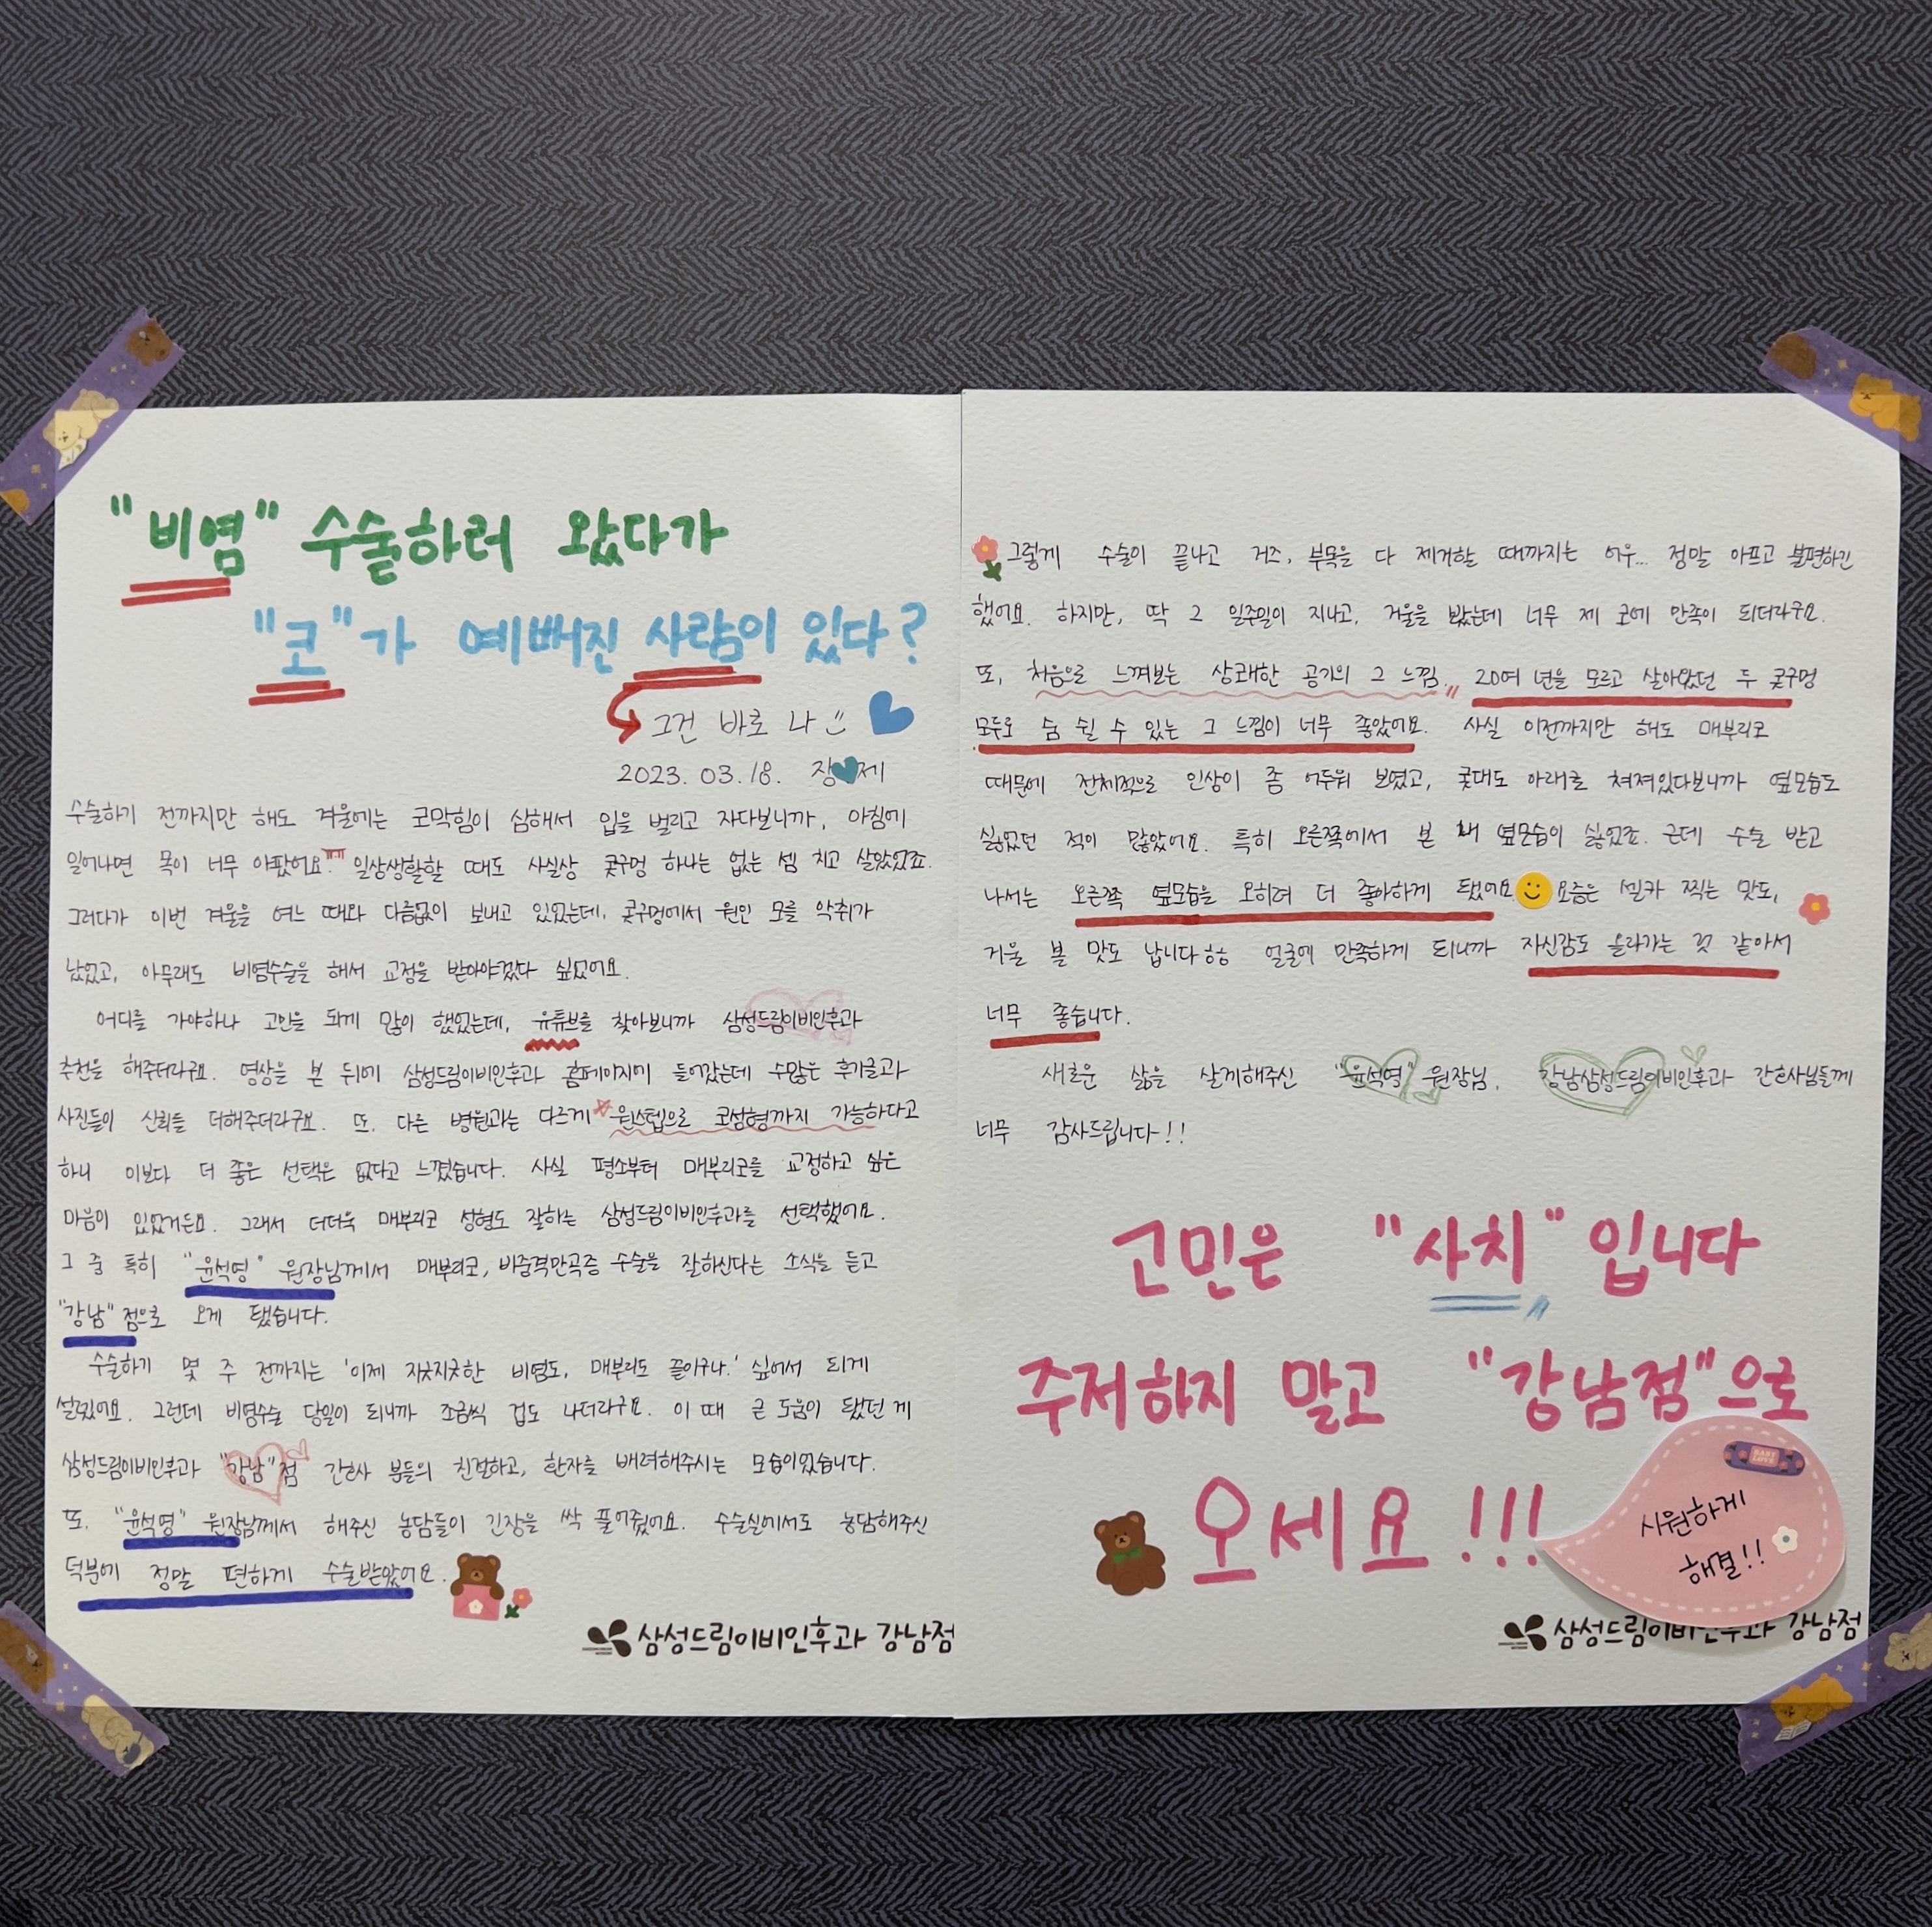 "비염" 수술하러 왔다가
"코"가 예뻐진 사람이 있다?
그건 바로 나
2023. 03. 18. 장 제
수술하기 전까지만 해도 겨울에는 코막힘이 심해서 입을 벌리고 자다보니까, 아침에
일어나면 목이 너무 아팠어요. 일상생활할 때도 사실상 콧구멍 하나는 없는 셈 치고 살았었죠.
그러다가 이번 겨울을 여느 때와 다름없이 보내고 있었는데, 콧구멍에서 원인 모를 악취가
났었고, 아무래도 비염수술을 해서 교정을 받아야겠다 싶었어요.
어디를 가야하나 고민을 되게 많이 했었는데, 유튜브를 찾아보니까 삼성드림이비인후과
추천을 해주더라구요. 영상을 본 뒤에 삼성드림이비인후과 홈페이지에 들어갔는데 수많은 후기글과
사진들이 신뢰를 더해주더라구요. 또, 다른 병원과는 다르게 원스텝으로 코성형까지 가능하다고
하니 이보다 더 좋은 선택은 없다고 느꼈습니다. 사실 평소부터 매부리코를 교정하고 싶은
마음이 있었거든요. 그래서 더더욱 매부리코 성형도 잘하는 삼성드림이비인후과를 선택했어요.
그 중 특히 "윤석영" 원장님께서 매부리코, 비중격만곡증 수술을 잘하신다는 소식을 듣고
"강남"점으로 오게 됐습니다.
수술하기 몇 주 전까지는 '이제 지긋지긋한 비염도, 매부리도 끝이구나.' 싶어서 되게
설렜어요. 그런데 비염수술 당일이 되니까 조금씩 겁도 나더라구요. 이 때 큰 도움이 됐던 게
삼성드림이비인후과 "강남"점 간호사 분들의 친절하고, 환자를 배려해주시는 모습이었습니다.
또, "윤석영" 원장님께서 해주신 농담들이 긴장을 싹 풀어줬어요. 수술실에서도 농담해주신
덕분에 정말 편하게 수술받았어요.
삼성드림이비인후과 강남점
그렇게 수술이 끝나고 거즈, 부목을 다 제거할 때까지는 어우... 정말 아프고 불편하긴
했어요. 하지만, 딱 2 일주일이 지나고, 거울을 봤는데 너무 제 코에 만족이 되더라구요.
또, 처음으로 느껴보는 상쾌한 공기의 그 느낌.. 20여 년을 모르고 살아왔던 두 콧구멍
모두로 숨 쉴 수 있는 그 느낌이 너무 좋았어요. 사실 이전까지만 해도 매부리코
때문에 전체적으로 인상이 좀 어두워 보였고, 콧대도 아래로 쳐져있다보니까 옆모습도
싫었던 적이 많았어요. 특히 오른쪽에서 본 제 옆모습이 싫었죠. 근데 수술 받고
나서는 오른쪽 옆모습을 오히려 더 좋아하게 됐어요 요즘은 셀카 찍는 맛도,
거울 볼 맛도 납니다ㅎㅎ 얼굴에 만족하게 되니까 자신감도 올라가는 것 같아서
너무 좋습니다.
새로운 삶을 살게해주신 "윤석영" 원장님, 강남삼성드림이비인후과 간호사님들께
너무 감사드립니다!!
고민은 "사치" 입니다
주저하지 말고 "강남점"으로
오세요!!!
BABY LOVE
시원하게
해결!!
삼성드림이비인후과 강남점